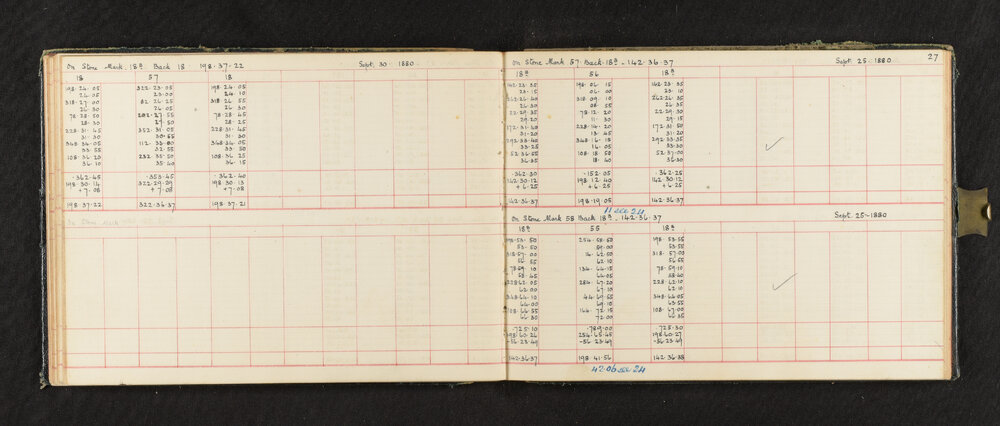 On Stone Mark 18ᵃ Back 18 198·37·22 Sept. 30 1880
18 57 18
108·24·05 322·23·05 198·24·05
24·05 23·00 24·10
318·27·00 82·26·25 318·26·55
26·30 26·05 26·30
78·28·50 78·28·45
28·30 27·50 28·25
228·31·45 352·31·05 228·31·45
31·30 30·55 31·30
348·34·05 112·33·00 348·34·05
33·55 32·55 33·50
108·36·20 232·35·50 108·36·25
36·10 35·40 36·15
·362·45 ·353·45 ·362·40
198·30·14 322·29·29 198·30·13
+7·08 +7·08 +7·08
198·37·22 322·36·37 198·37·21
27
On Stone Mark 57 Back 18ᵃ - 142·36·37 Sept. 25·1880
18ᵃ 56 18ᵃ
142·23·35 198·04·15 142·23·35
23·15 04·00 23·10
262·26·40 318·09·10 262·26·35
26·30 08·55 26·35
22·29·35 78·12·20 22·29·30
29·20 11·30 29·15
172·31·40 228·14·20 172·31·50
31·20 13·45 31·20
292·33·40 348·16·15 292·33·35
33·25 16·05 33·30
52·36·55 108·18·50 52·37·00
36·35 18·40 36·30
·362·30 ·152·05 ·362·25
142·30·12 198·12·40 142·30·12
+6·25 +6·25 +6·25
142·36·37 198·19·05 142·36·37
11 sec 24
On Stone Mark 58 Back 18ᵃ - 142·36·37 Sept 25-1880
18ᵃ 55 18ᵃ
198·53·50 254·58·50 198·53·55
53·50 59·00 53·55
318·57·00 14·62·50 318·57·00
56·55 62·10 56·55
78·59·10 134·64·15 78·59·10
58·45 64·05 58·40
228·62·05 284·67·20 228·62·10
62·00 67·10 62·10
348·64·10 44·69·55 348·64·05
64·00 69·10 63·55
108·66·55 164·72·15 108·67·00
66·30 72·00 66·35
·725·10 ·789·00 ·725·30
198·60·26 254·65·45 198·60·27
-56·23·49 -56·23·49 -56·23·49
142·36·37 198·41·56 142·36·38
42·06 sec 24